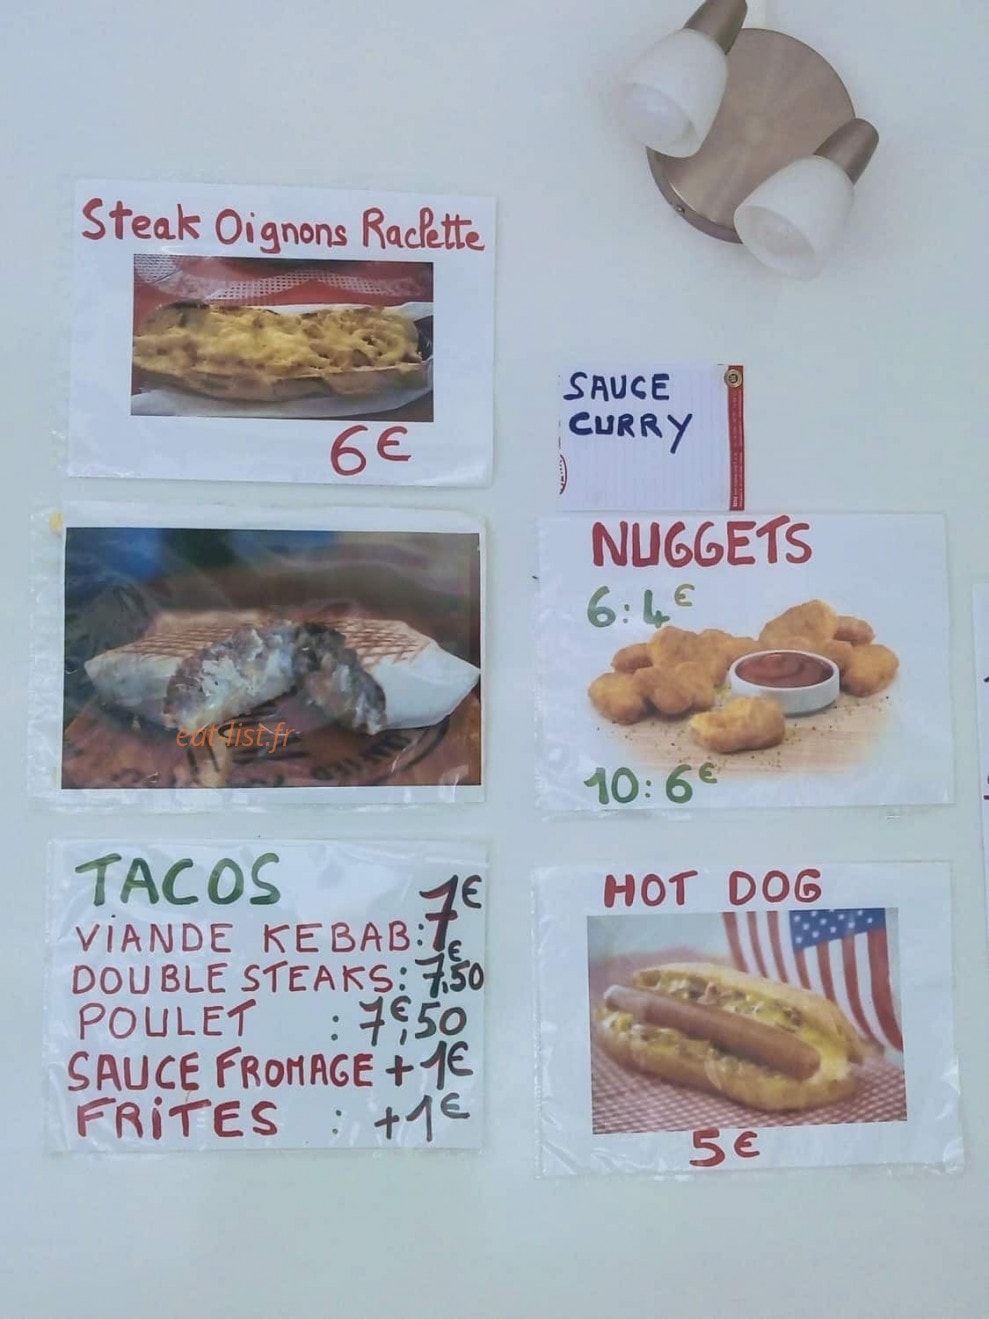 Steak Oignons Raclette
6€
SAUCE
CURRY
eat-list.fr
NUGGETS
6:4€
10:6€
TACOS
VIANDE KEBAB:7€
DOUBLE STEAKS:7€,50
POULET :7€,50
SAUCE FROMAGE +1€
FRITES : +1€
HOT DOG
5€